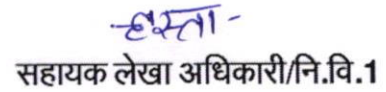 -हस्ता-
सहायक लेखा अधिकारी/नि.वि.1